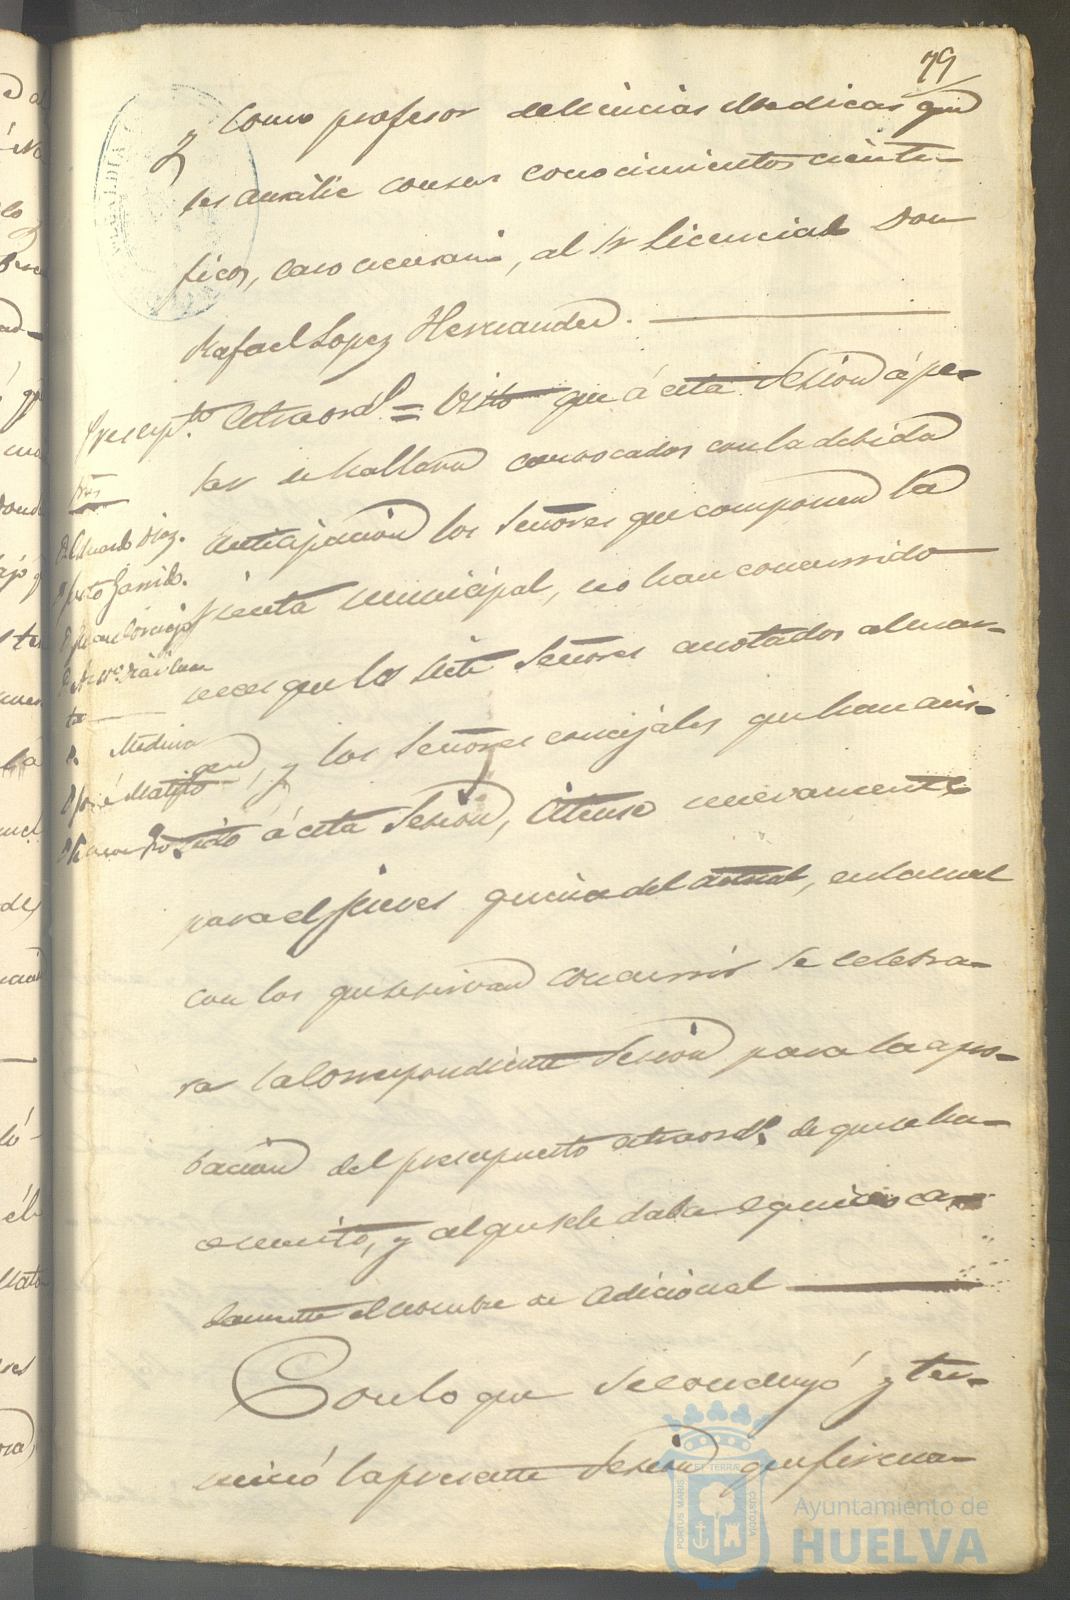 79
y como profesor de Ciencias Medicas que
les auxilie con sus conocimientos cienti-
ficos, caso necesario, al Sr Licenciado Don
Rafael Lopez Hernandez.
Presupto. Extraordo = Visto que á esta Sesion á pe-
sar se hallaran convocados con la debida
anticipacion los Señores que componen la
Junta municipal, no han concurrido
mas que los siete Señores anotados al mar-
gen, y los Señores concejales que han asis-
tido á esta Sesion, Citense nuevamente
para el Jueves quince del actual, en la cual
con los que se sirvan concurrir se celebra-
ra la Correspondiente Sesion para la apro-
bacion del presupuesto extraord.º de que se ha
escrito, y al que se le daba equivoca-
damente el nombre de adicional
Con lo que se concluyó y ter-
minó la presente Sesion que firma-
Sres
D. Eduardo Diaz.
D. Justo Garrido.
D. Juan Cornejo
ta
D. Medina
D. José Matito
PORTUS MARIS ET TERRAE CUSTODIA
Ayuntamiento de
HUELVA